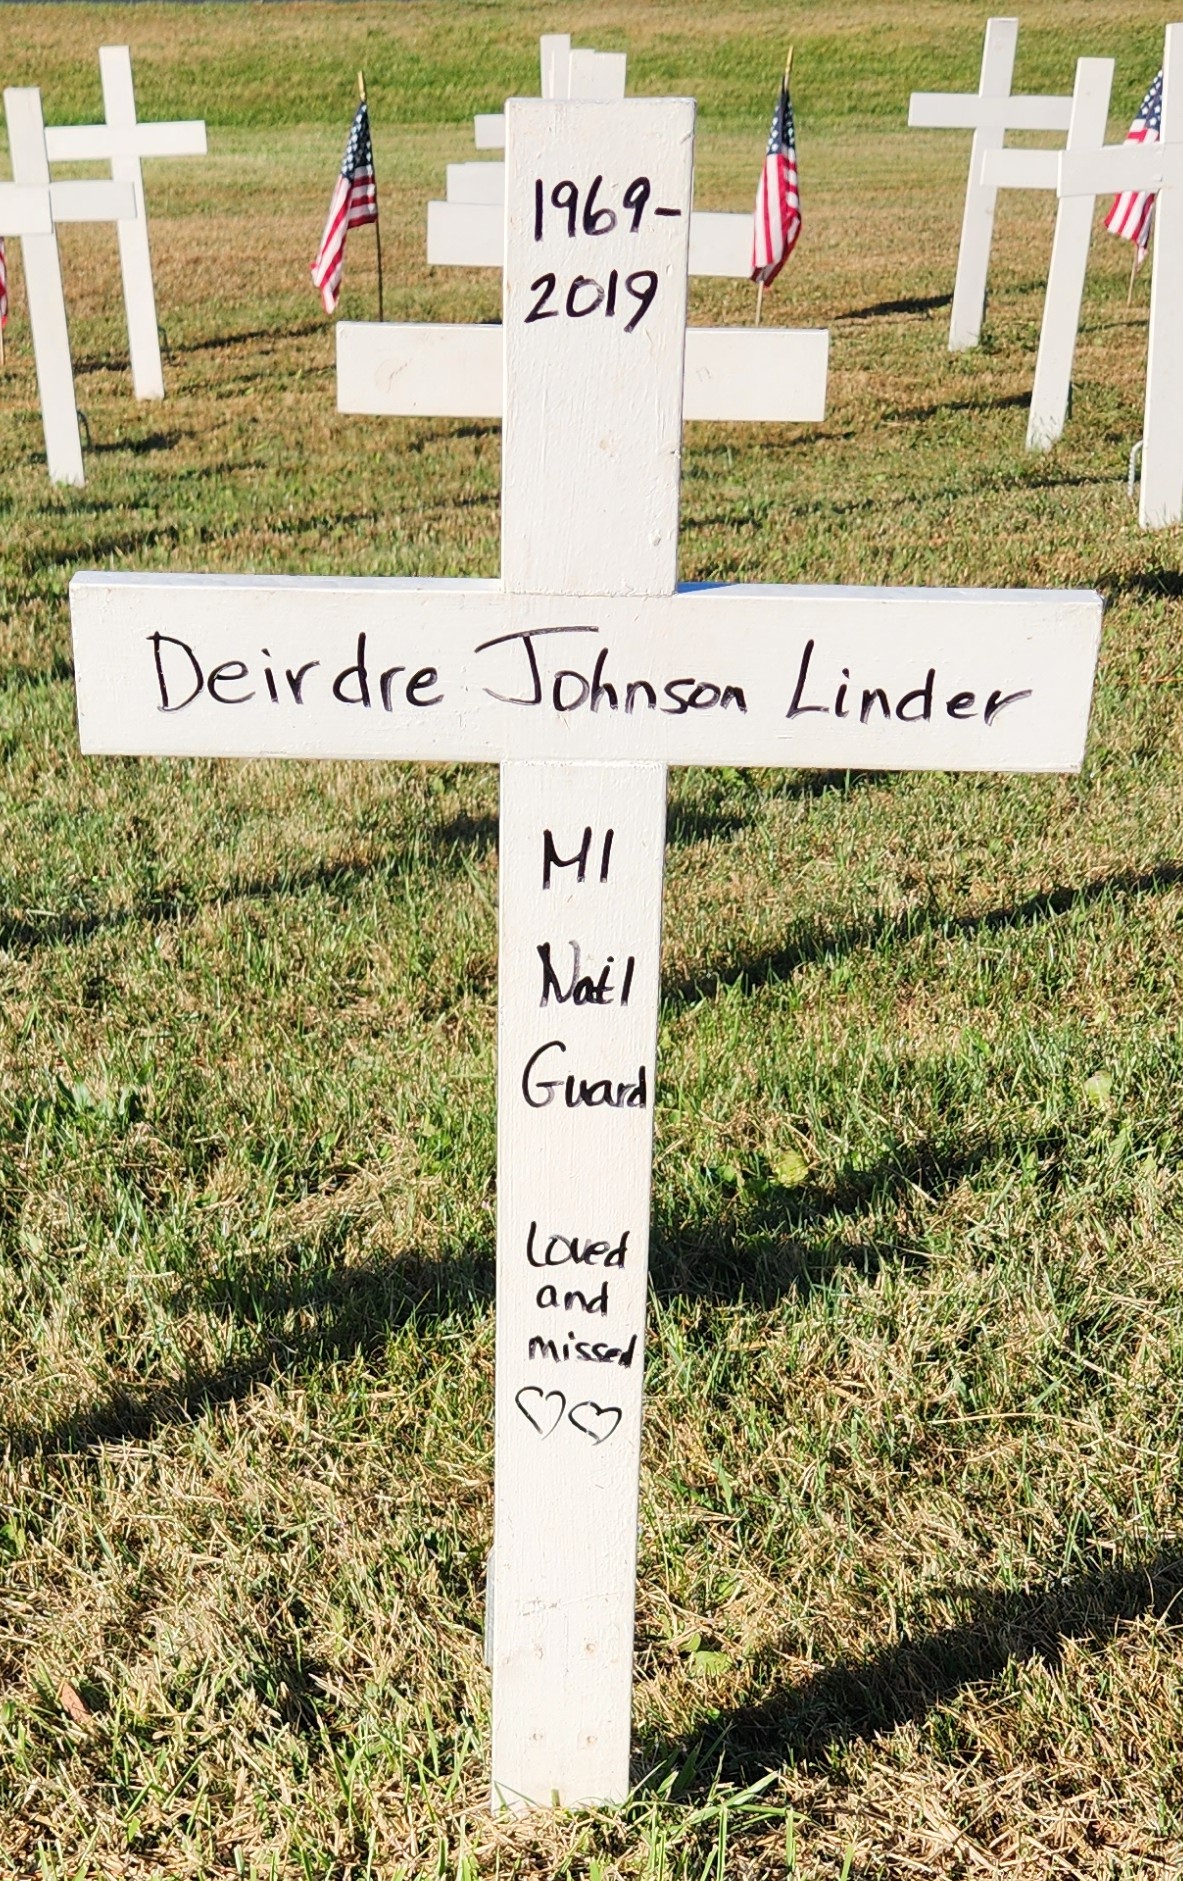 1969-
2019
Deirdre Johnson Linder
MI
Nat'l
Guard
Loved
and
missed